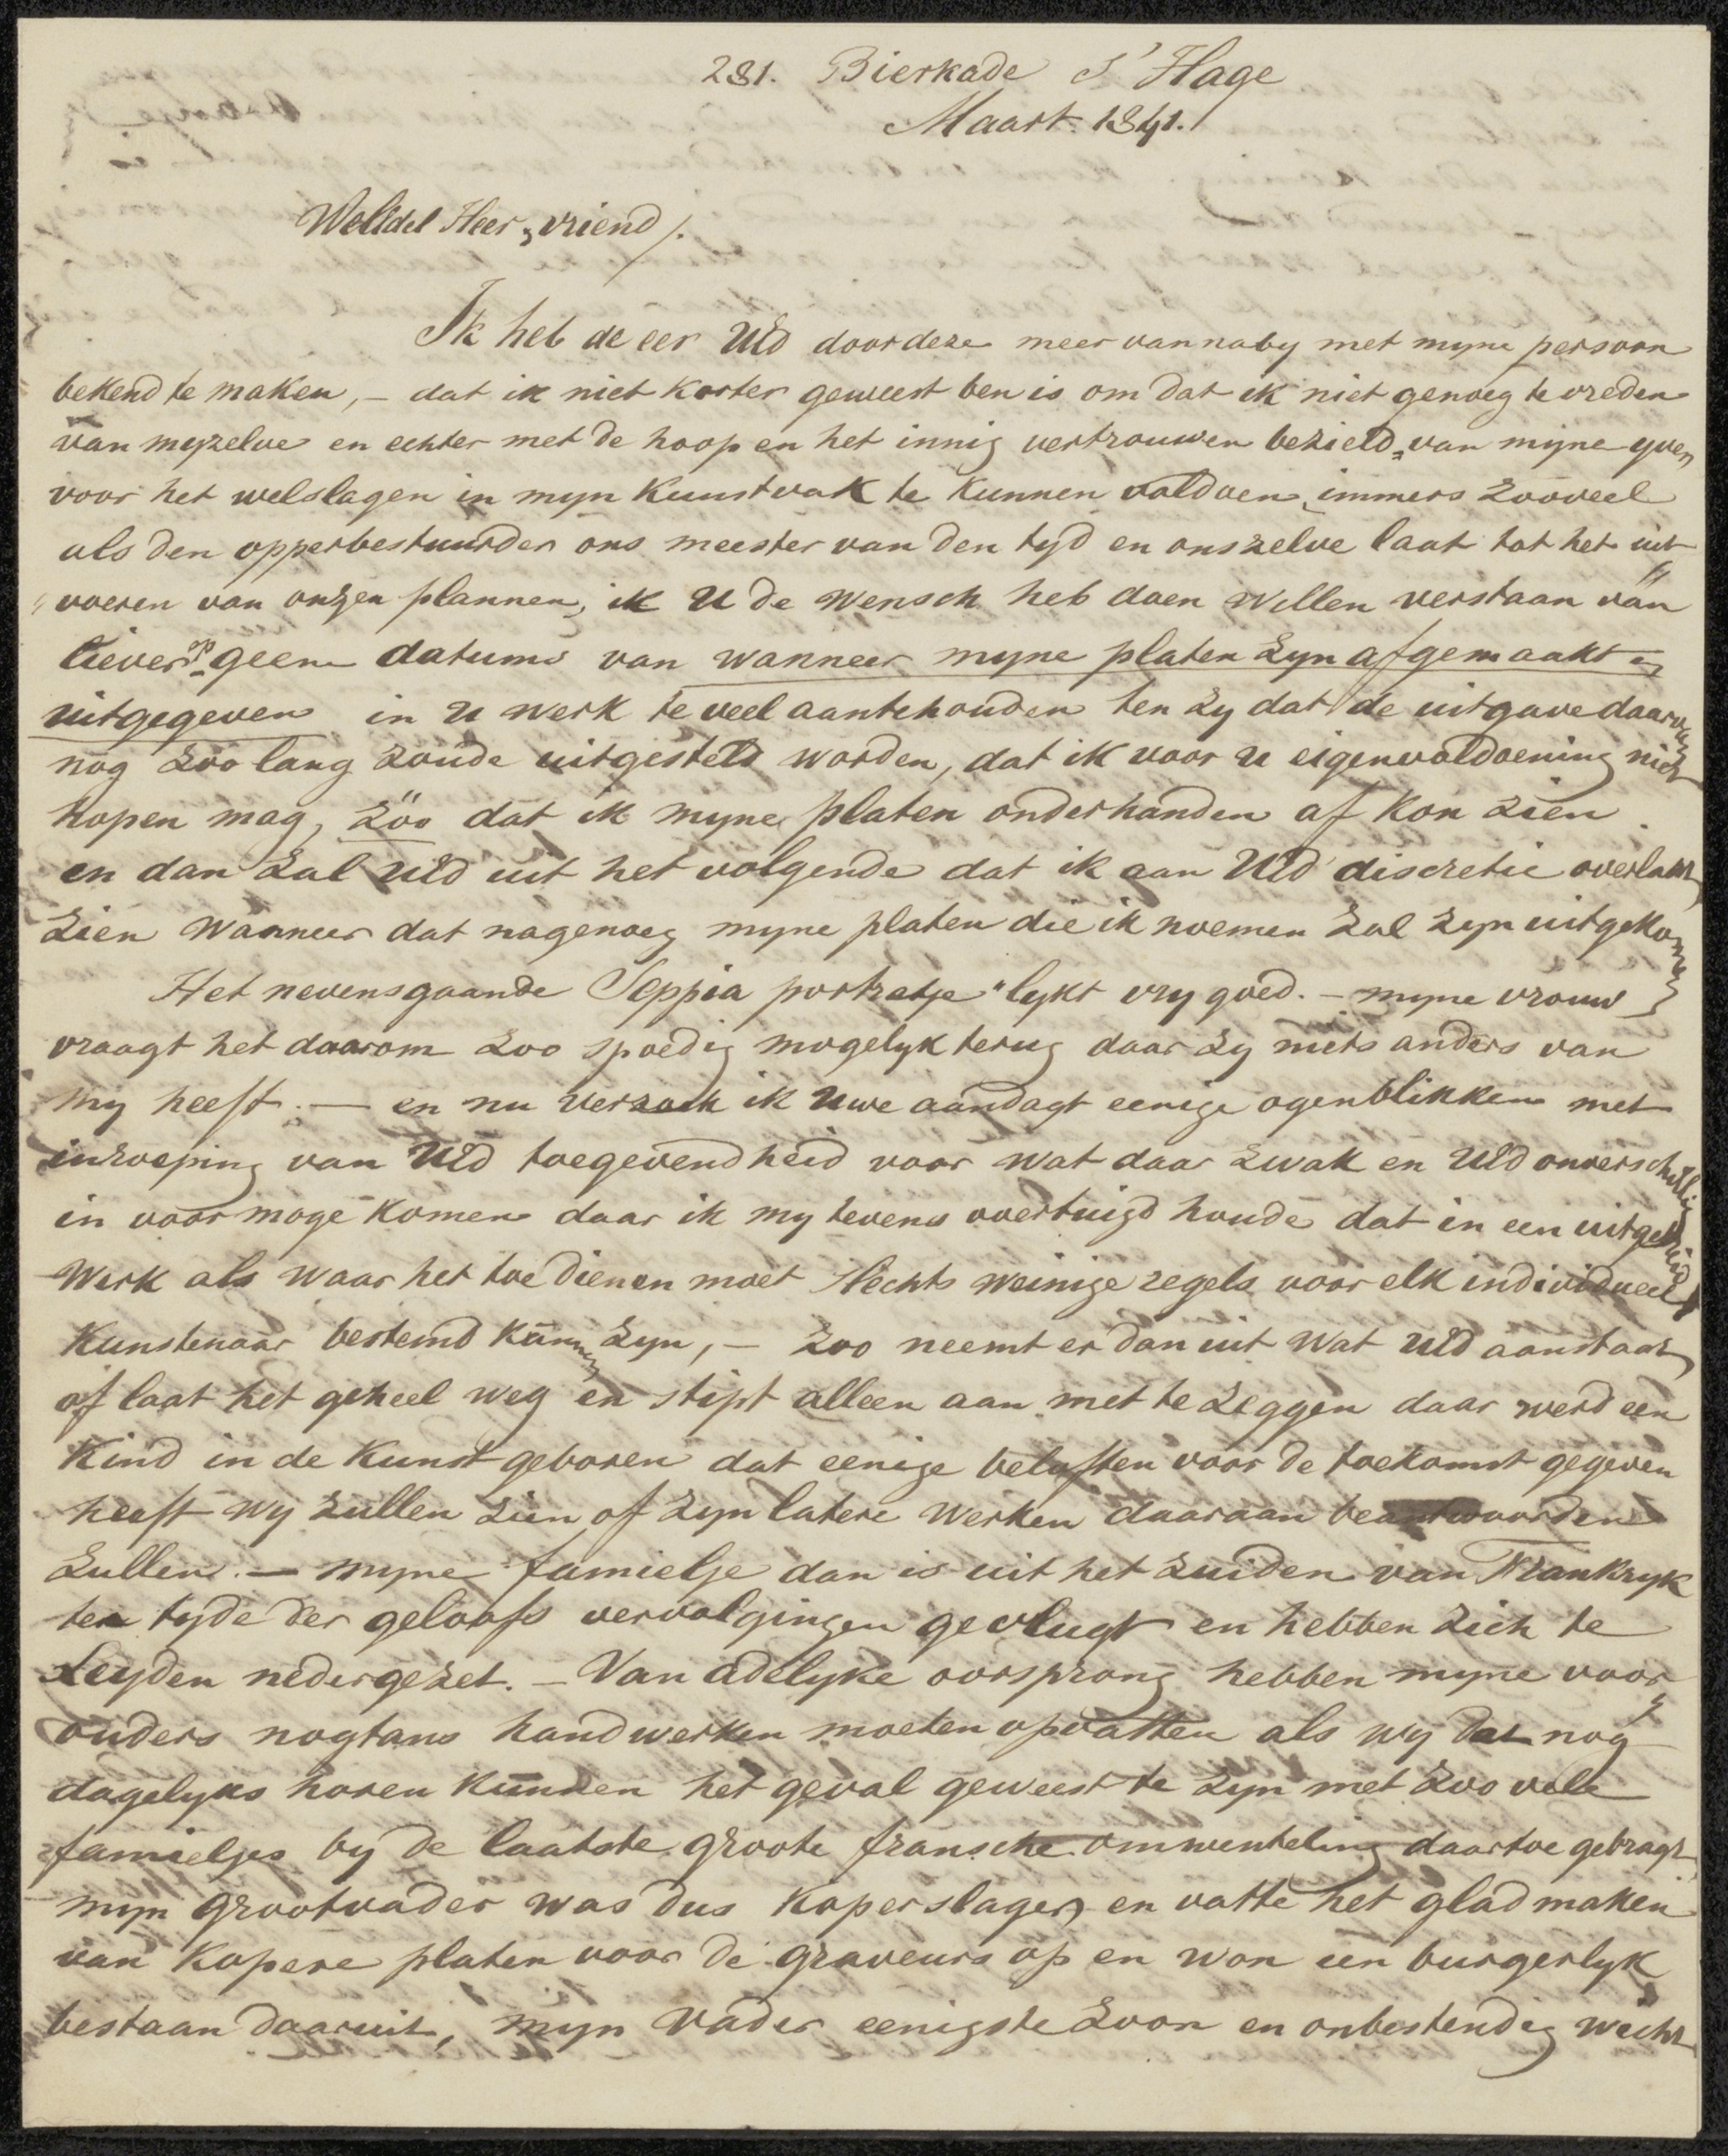 281. Bierkade S'Hage
Maart. 1841.
WelEdel Heer, vriend /.
Ik heb de eer UEd door deze meer van naby met myne persoon
bekend te maken, – dat ik niet korter geweest ben is om dat ik niet genoeg te vreden
van myzelve en echter met de hoop en het innig vertrouwen bezield van mijne yver
voor het welslagen in myn Kunstvak te Kunnen voldoen, immers zooveel
als den opperbestuurder ons meester van den tyd en onszelve laat tot het uit
voeren van onzen plannen, ik U de wensch heb doen willen verstaan van
liever op geene datums van wanneer myne platen zyn afgemaakt en
uitgegeven in U werk te veel aantehouden ten zy dat de uitgave daarvan
nog zoo lang zoude uitgesteld worden, dat ik voor U eigenvoldoening niet
hopen mag, zoo dat ik myne platen onderhanden af kon zien
en dan zal UEd uit het volgende dat ik aan UEd discretie overlaat
zien wanneer dat nagenoeg myne platen die ik noemen zal zyn uitgekomen
Het nevensgaande Seppia portretje lykt vry goed. – myne vrouw
vraagt het daarom zoo spoedig mogelyk terug daar zy niets anders van
my heeft. – en nu verzoek ik Uwe aandagt eenige ogenblikken met
inroeping van UEd toegevendheid voor wat daar zwak en UEd onverschillig
in voor moge komen daar ik my tevens overtuigd houde dat in een uitgebreid
Werk als waar het toe dienen moet slechts weinige regels voor elk individueel
Kunstenaar bestemd kunnen zyn, – zoo neemt er dan uit wat UEd aanstaat
of laat het geheel weg en stipt alleen aan met te zeggen daar werd een
Kind in de Kunst geboren dat eenige beloften voor de toekomst gegeven
heeft wy zullen zien of zyn latere werken daaraan beantwoorden
zullen. – myne famielje dan is uit het zuiden van Frankryk
ten tyde der geloofs vervolgingen gevlugt en hebben zich te
Leyden nedergezet. – Van adelyke oorsprong hebben myne voor
ouders nogtans handwerken moeten opvatten als wy dat nog
dagelyks horen kunnen het geval geweest te zyn met zoo vele
famieljes by de laatste groote fransche omwenteling daartoe gebragt
myn grootvader was dus koperslager en vatte het glad maken
van kopere platen voor de graveurs op en won een burgerlyk
bestaan daaruit, myn Vader eenigste zoon en onbestendig